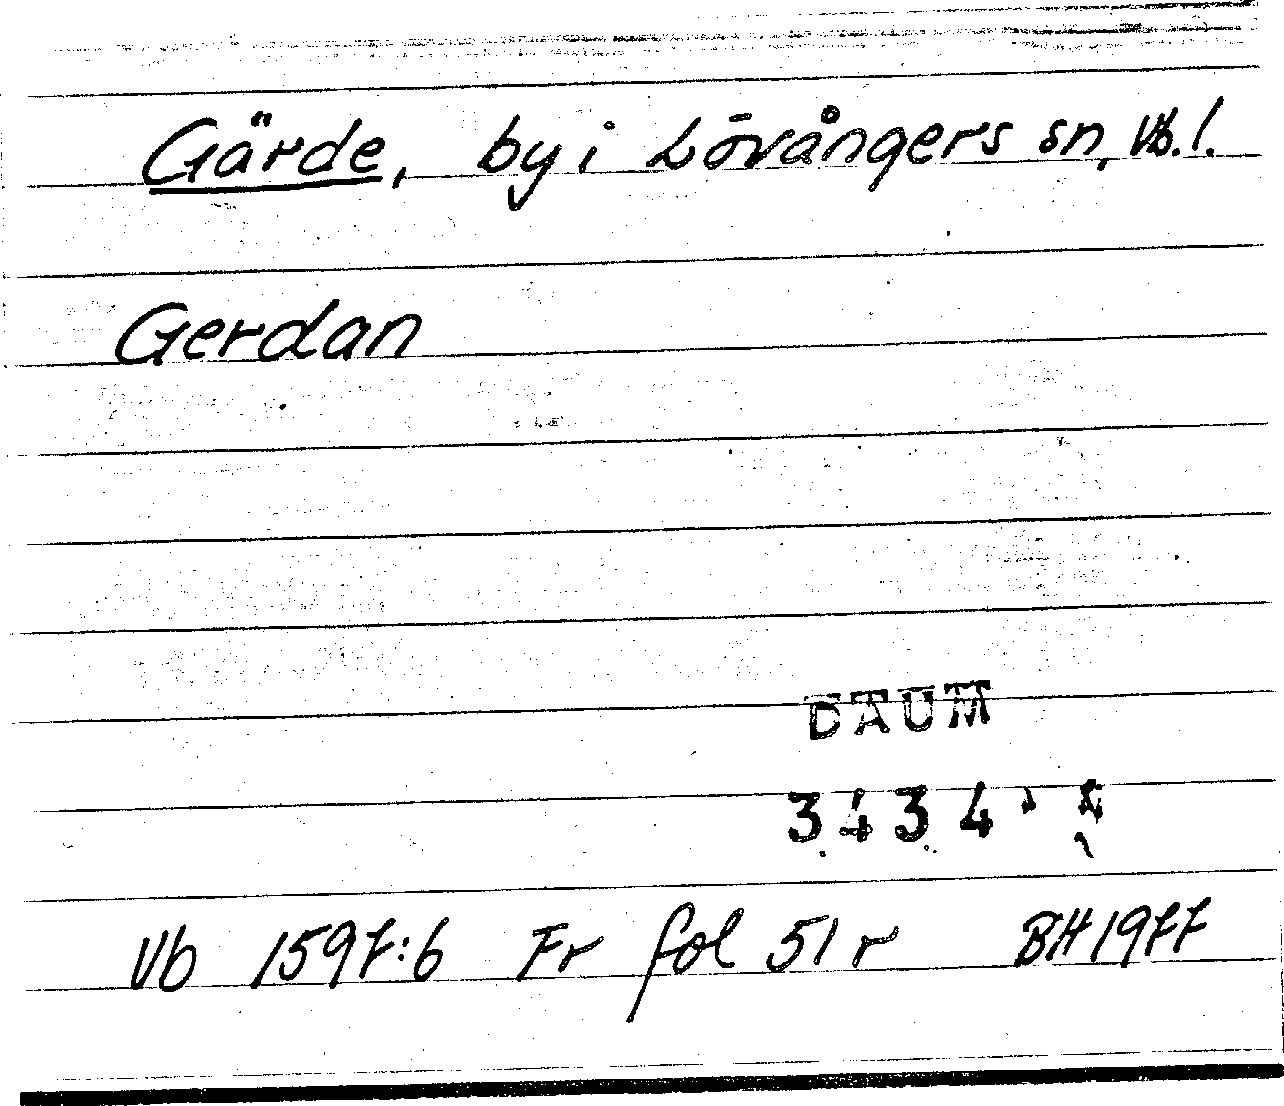 Gärde, by i Lövångers sn, Vb.l.
Gerdan
DAUM
3434
Vb 1597:6 Fr fol 51 r BH 1977